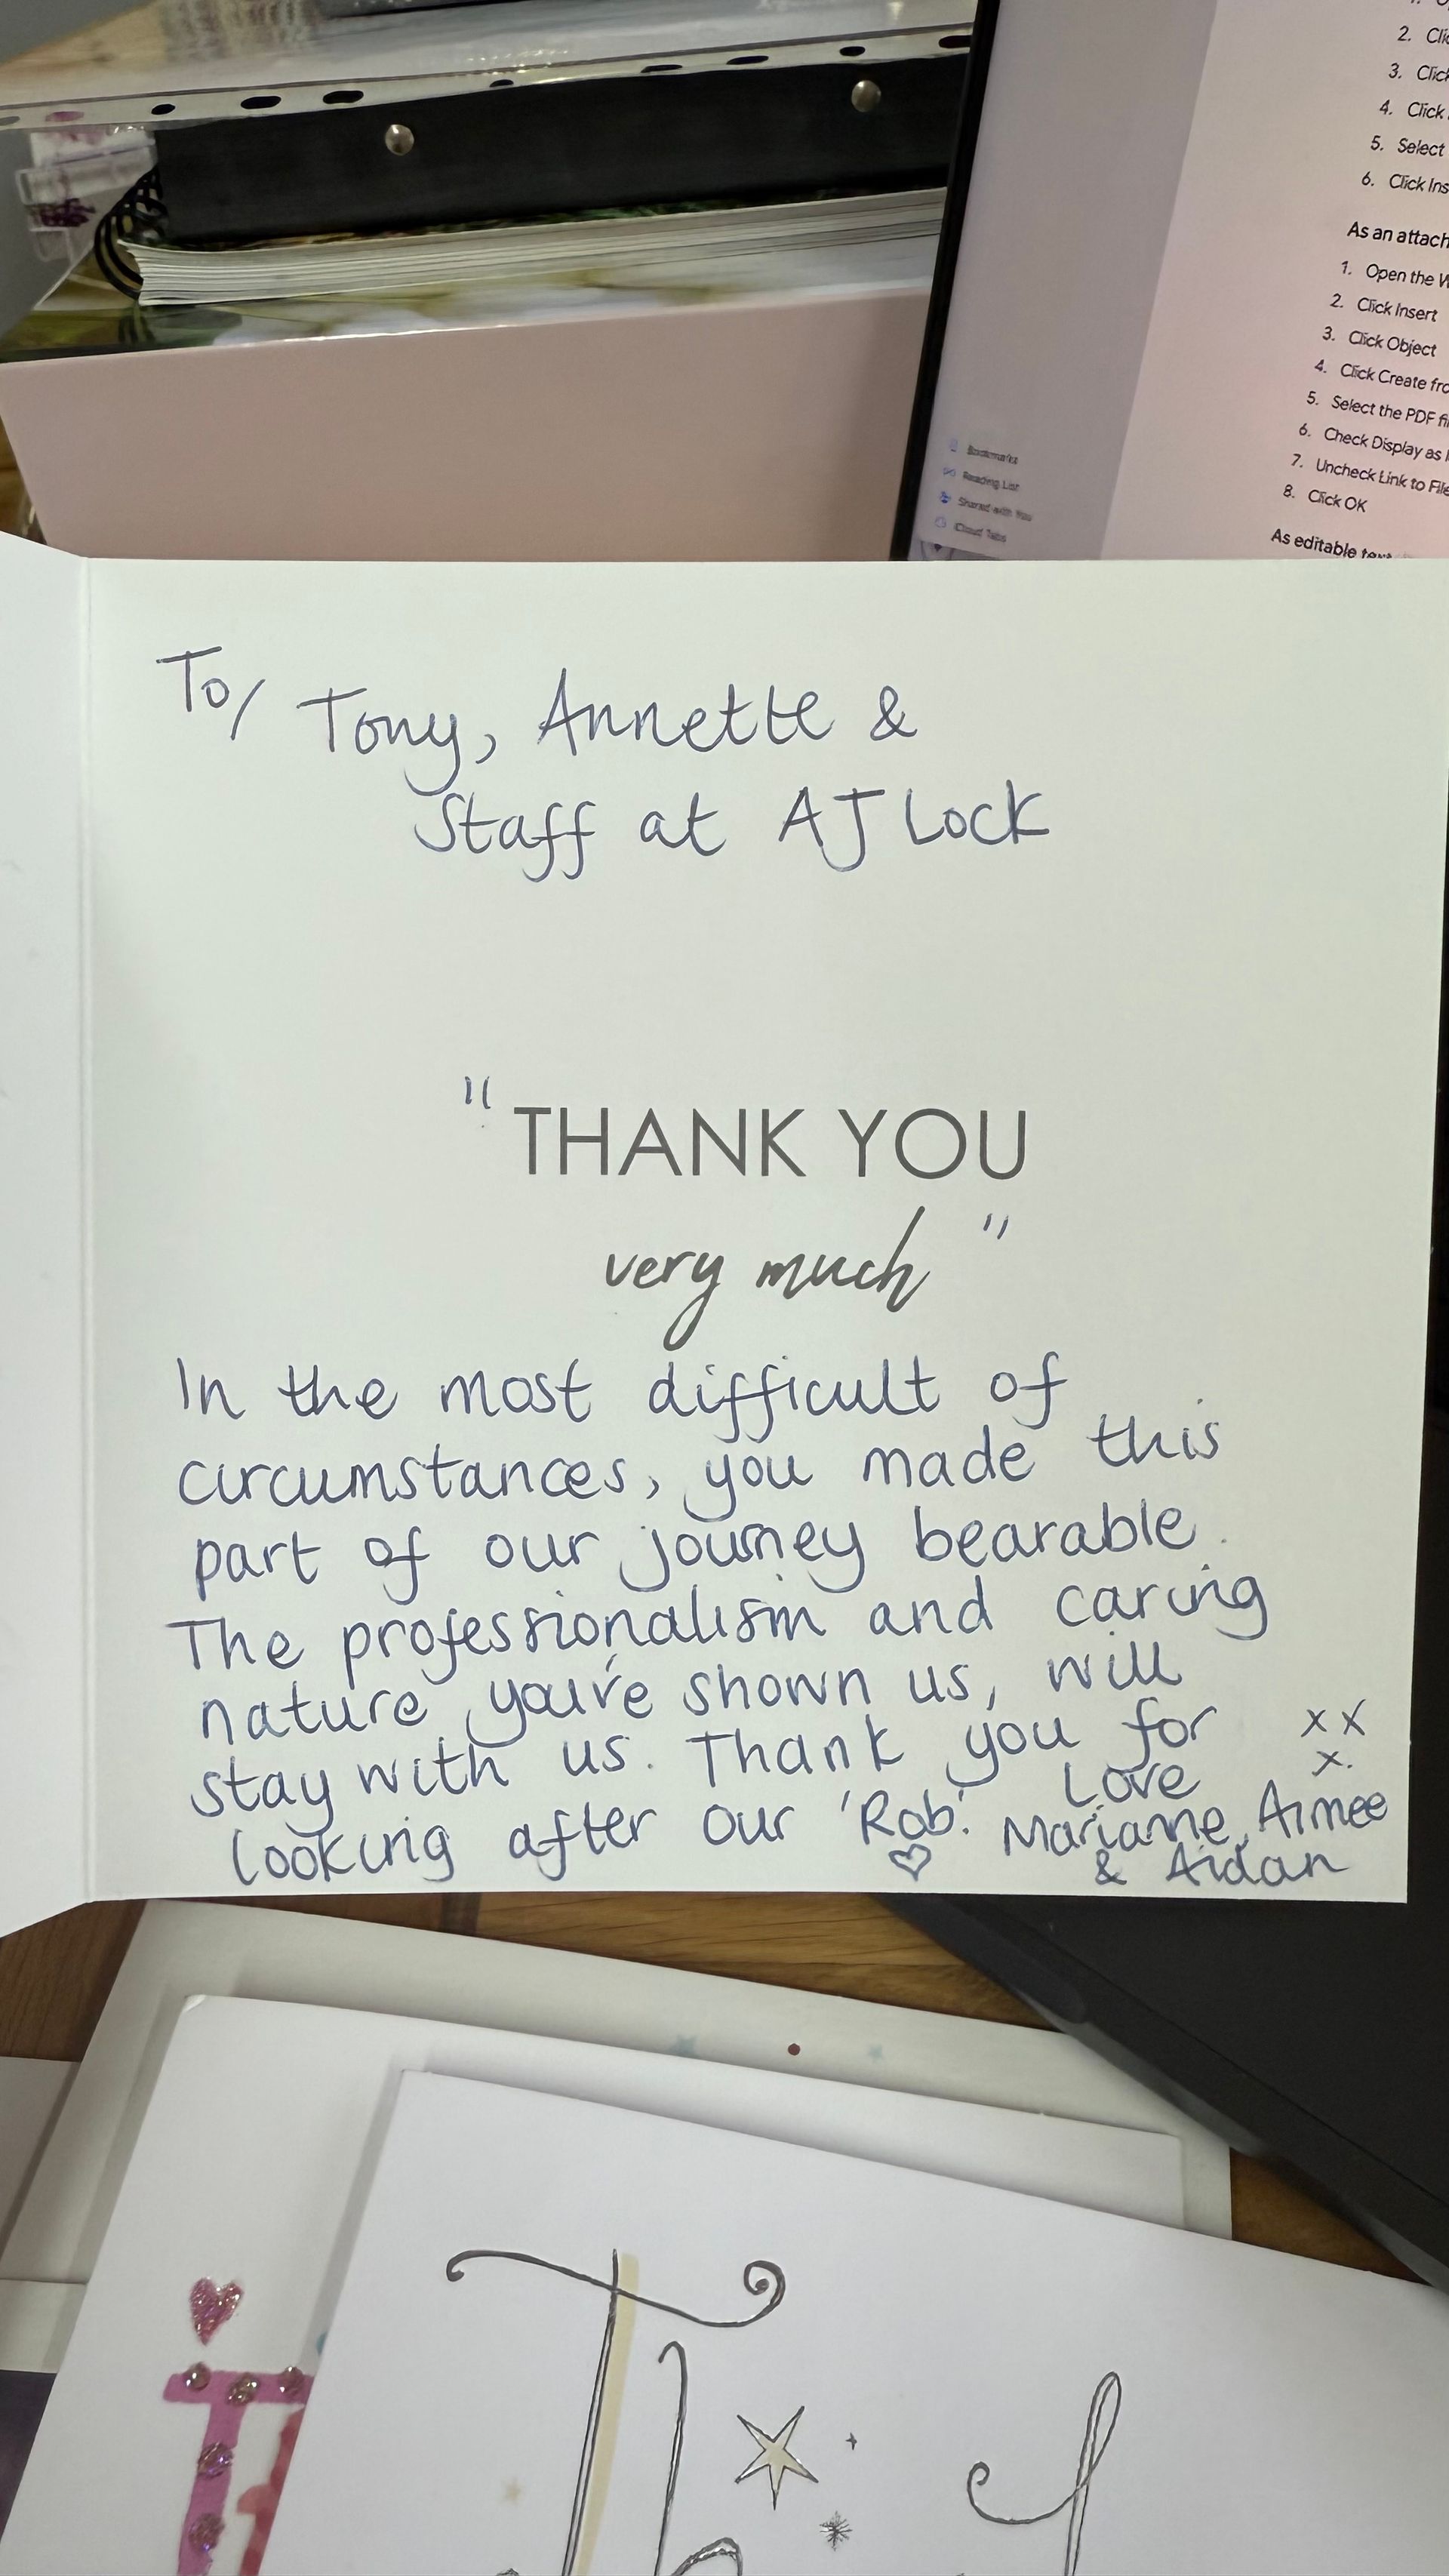 2. Clic
3. Click
4. Click
5. Select
6. Click Ins
As an attach
1. Open the W
2. Click Insert
3. Click Object
4. Click Create fro
5. Select the PDF fi
6. Check Display as
7. Uncheck Link to File
8. Click OK
As editable text
Bookmarks
Reading List
Shared with You
iCloud Tabs
To/ Tony, Annette &
Staff at AJ Lock
"THANK YOU
very much"
In the most difficult of
circumstances, you made this
part of our journey bearable.
The professionalism and caring
nature you've shown us, will
stay with us. Thank you for
looking after our 'Rob'.
Love xx
x.
Marianne, Aimee
& Aidan